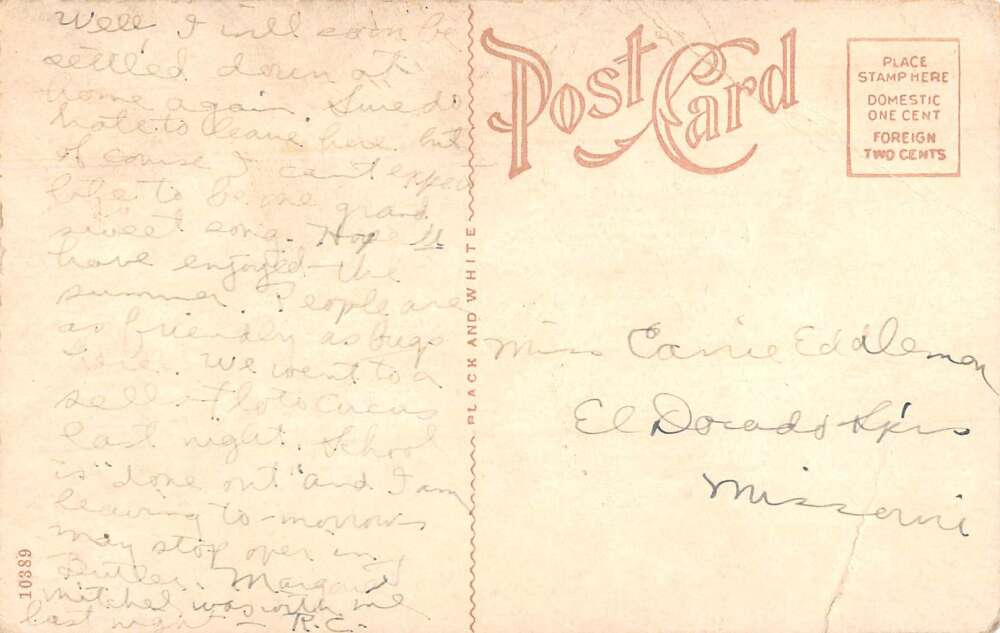 Well I will soon be
settled down at
home again. Sure do
hate to leave here but
of course I can't expect
life to be one grand
sweet song. Hope U
have enjoyed the
summer. People are
as friendly as bugs
here. We went to a
sell Floto Circus
last night. School
is "done out" and I am
leaving to-morrow
may stop over in
Butler. Margaret
Mitchel was with me
last night — R.C.
Post Card
PLACE
STAMP HERE
DOMESTIC
ONE CENT
FOREIGN
TWO CENTS
PLACK AND WHITE
10389
Miss Carrie Eddleman
El Dorado Sp'rs
Missouri